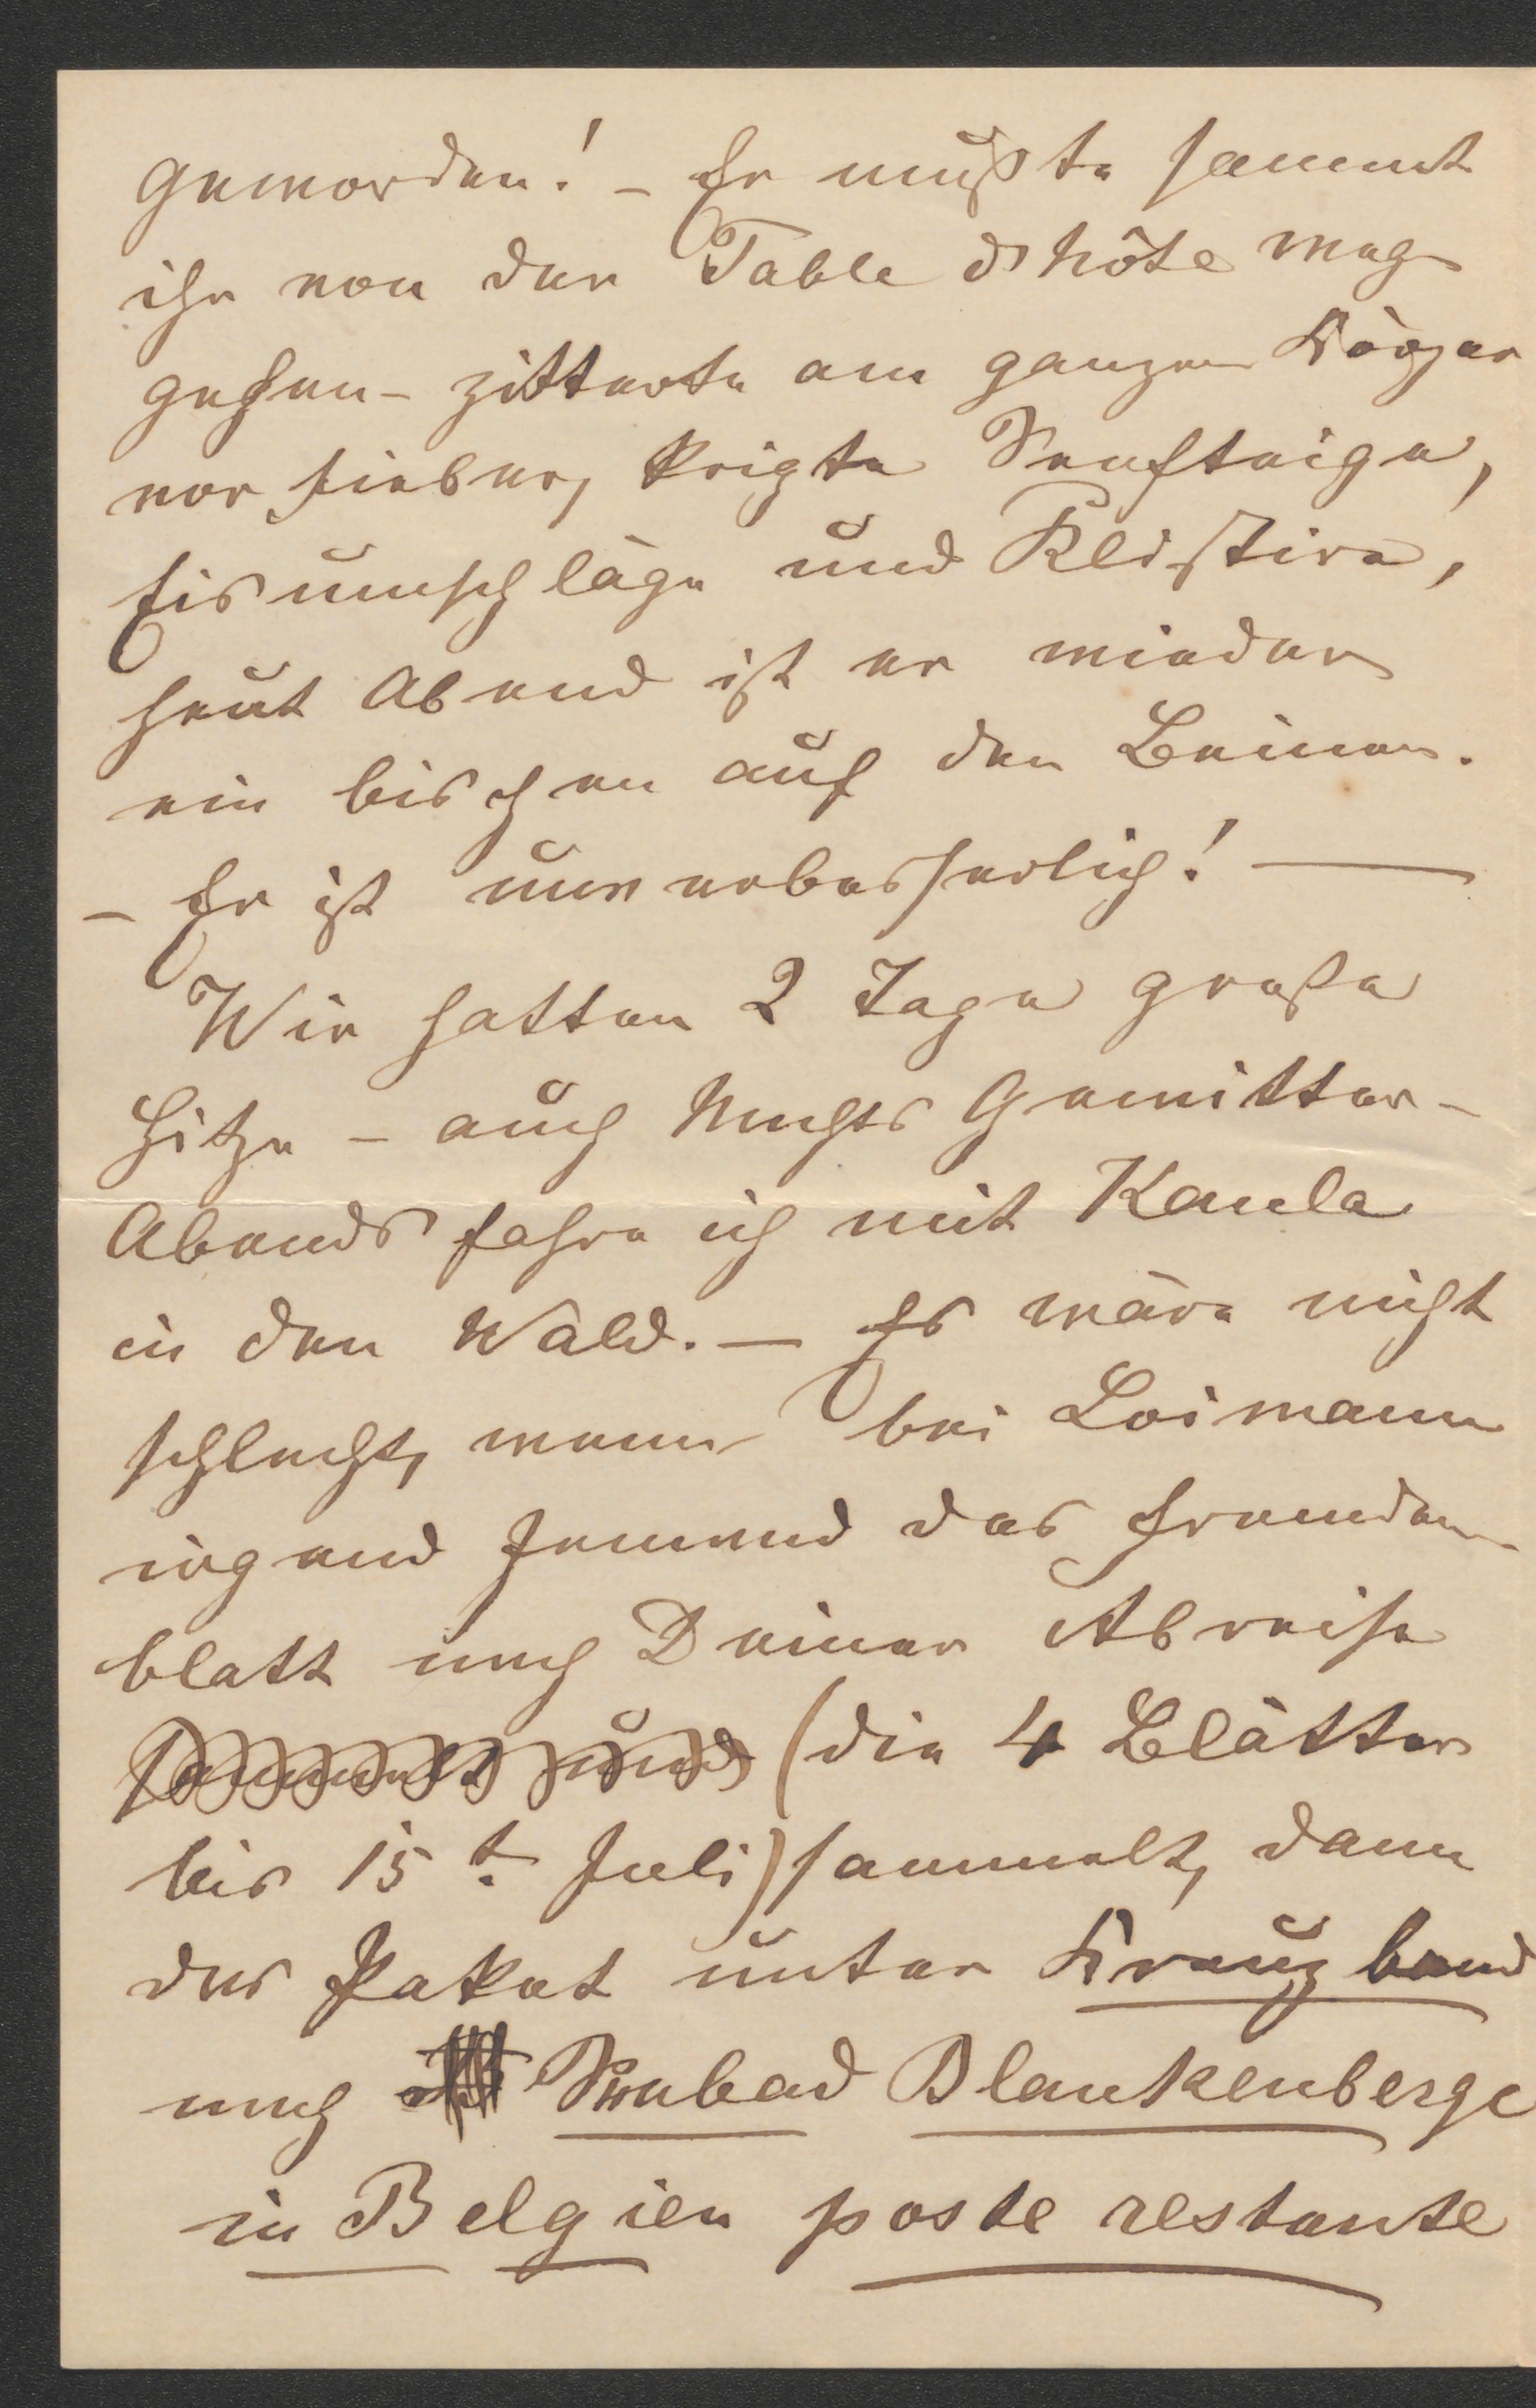 geworden! – Er mußte sammt
ihr von der Table d'hôte weg
gehen – zitterte am ganzen Körper
vor Fieber, krigte Senfteige,
Eisumschläge und Klistire,
heut Abend ist er wieder
ein bischen auf den Beinen.
– Er ist unverbesserlich! —
Wir hatten 2 Tage große
Hitze – auch Nachts Gewitter –
Abends fahre ich mit Kaula
in den Wald. – Es wäre nicht
schlecht, wenn bei Loimann
irgend Jemand das Fremden
blatt nach Deiner Abreise
sammelt und (die 4 Blätter
bis 15t. Juli) sammelt, dann
das Paket unter Kreuzband
nach Seebad Blankenberge
in Belgien poste restante